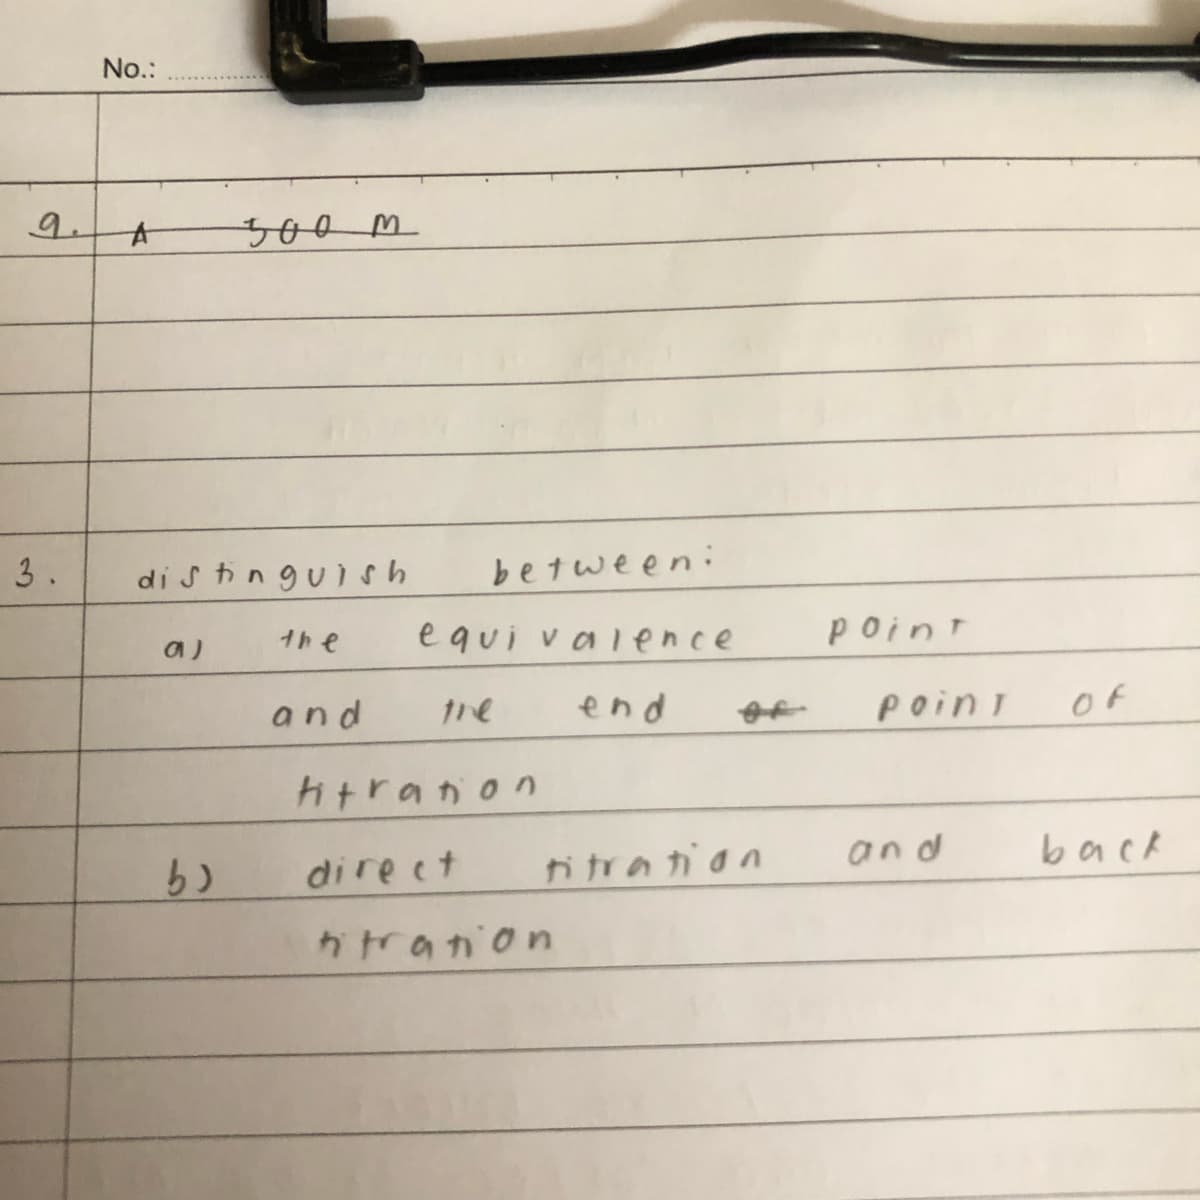 No.:
9. A 500 m
3. distinguish between:
a) the equivalence point
and the end of point of
titration
b) direct titration and back
titration